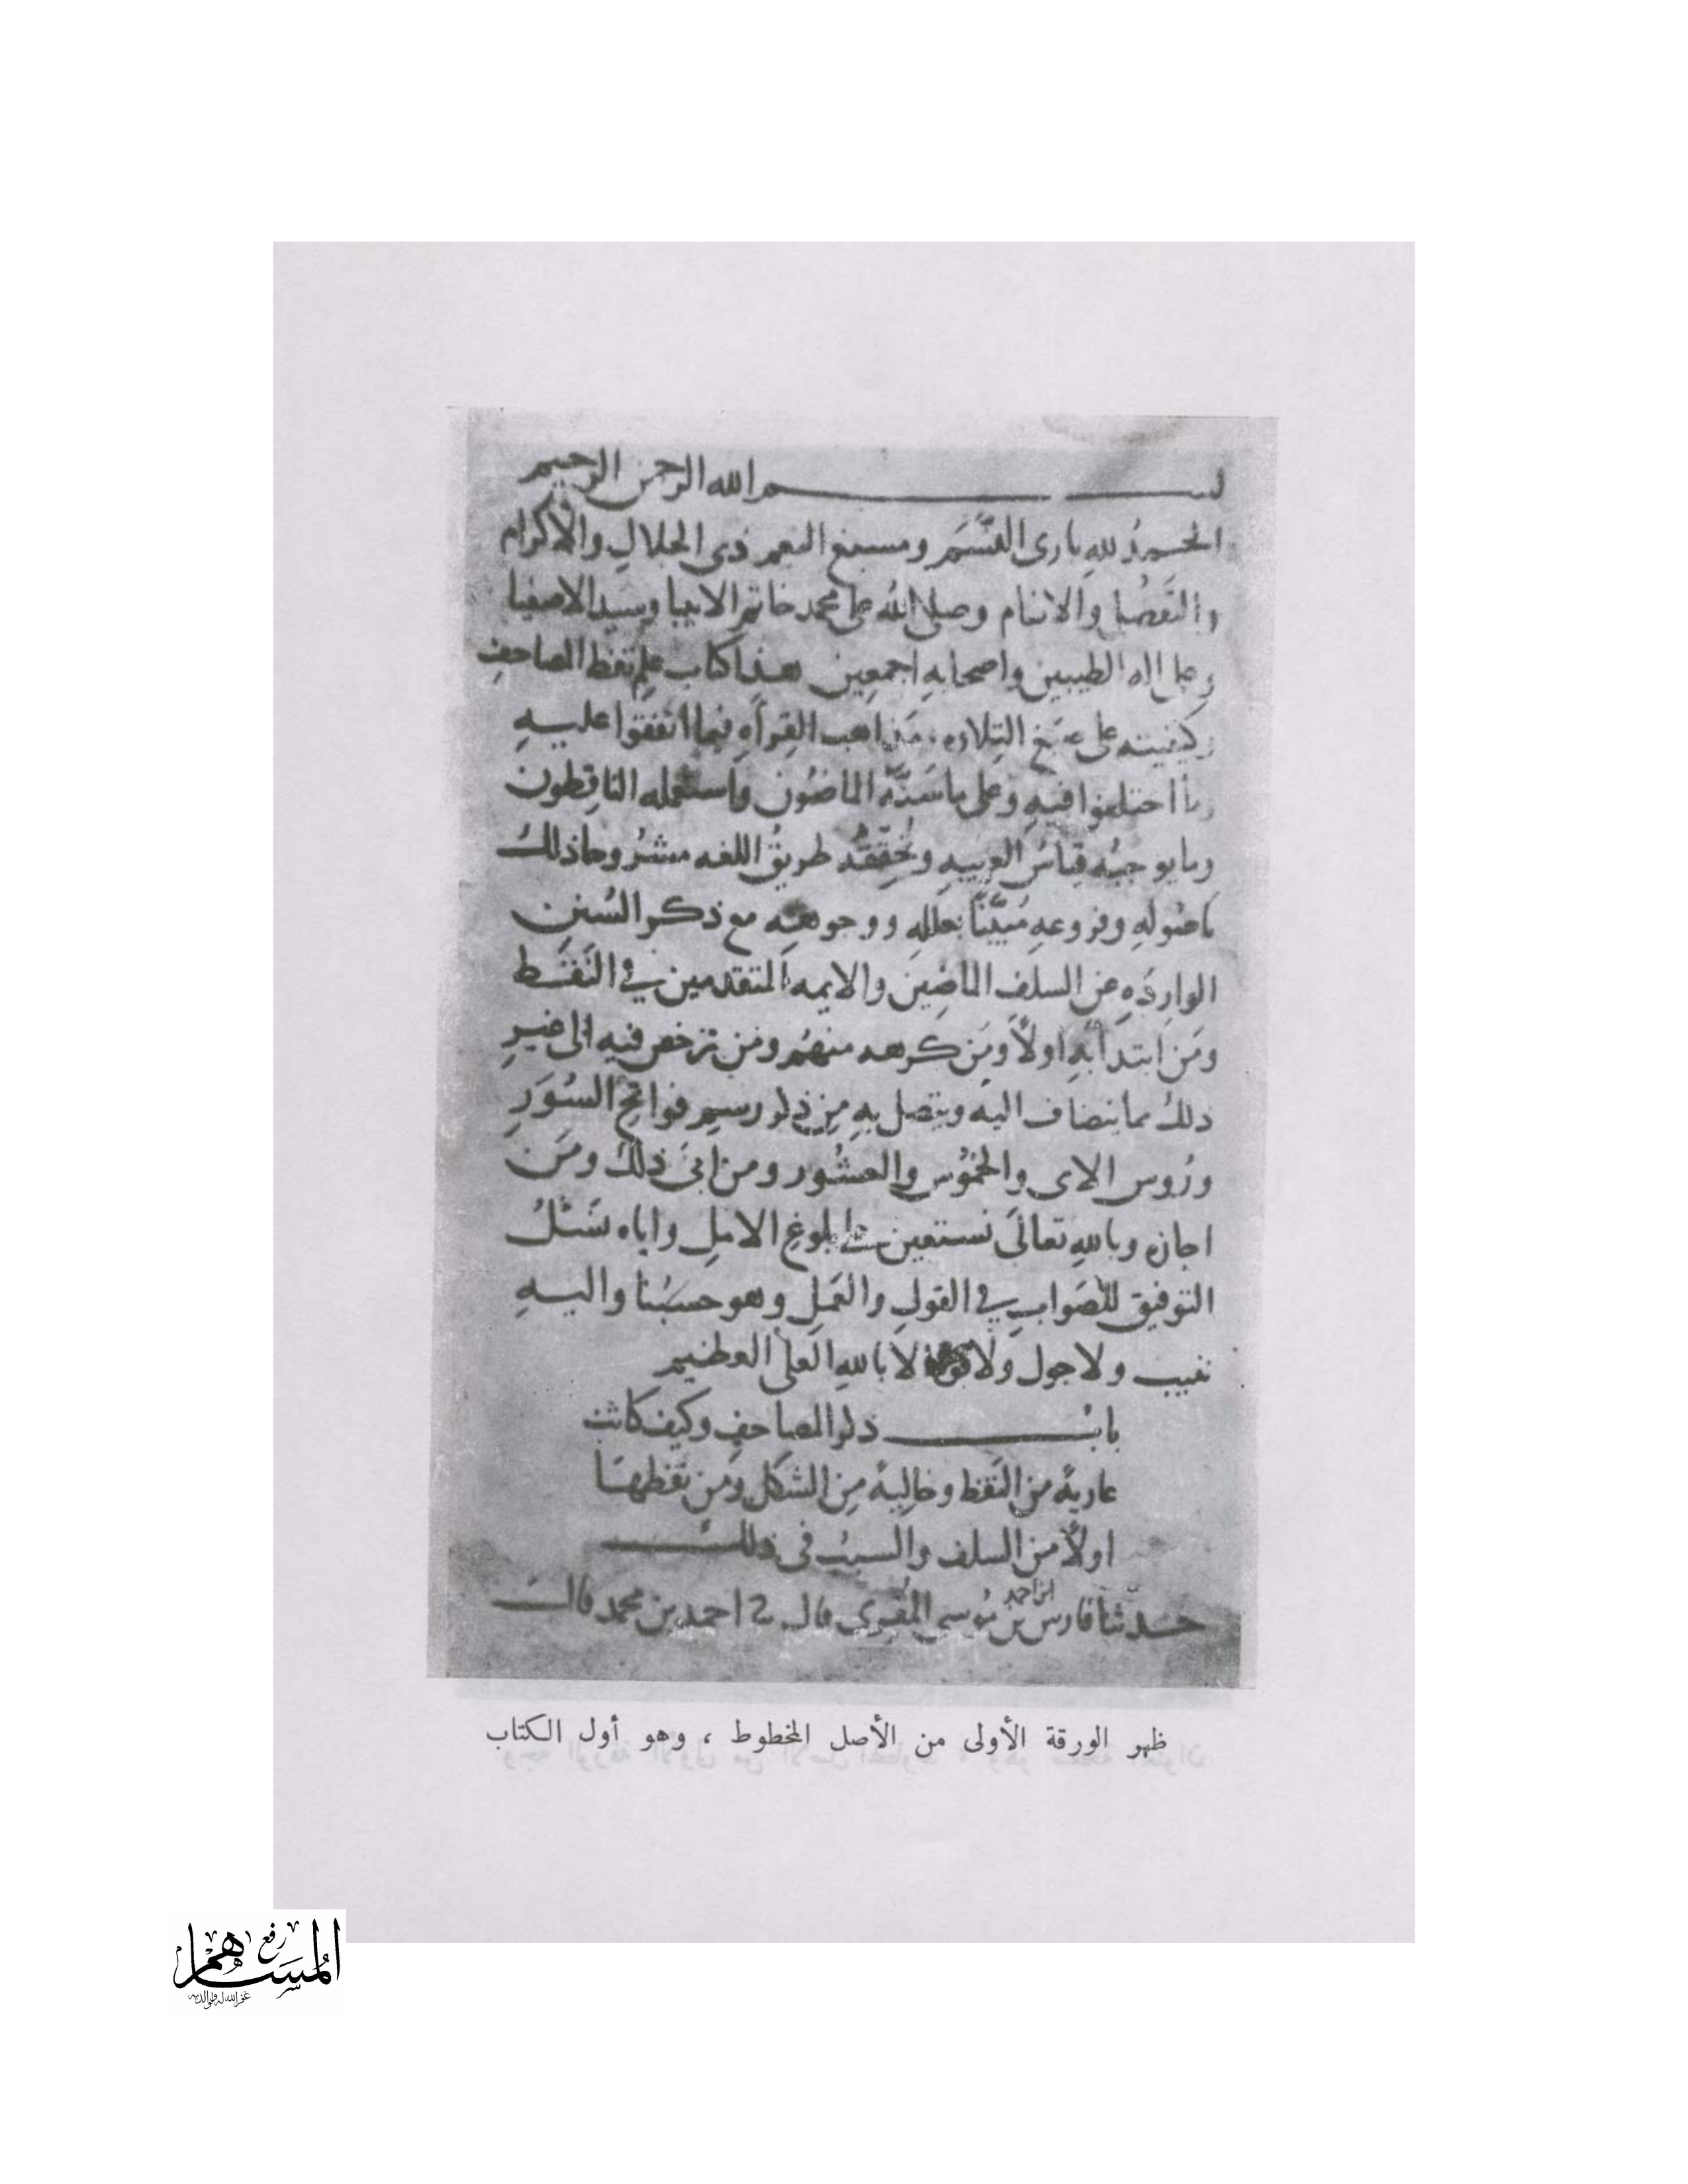 بســـــم الله الرحمن الرحيم
الحمدُ للهِ بارى النَّسَم ومسبغ النعم ذى الجلالِ والاكرام
والتفضُّل والانعام وصلى الله على محمد خاتم الانبيا وسيد الاصفيا
وعلى اله الطيبين واصحابه اجمعين هذا كتاب علم نقط المصاحفِ
وكيفيته على صيغ التِلاوه ومذاهب القِراَةِ فيما اتفقوا عليهِ
وما اختلفوا فيهِ وعلى ما سَنَّه الماضُون واستعمله الناقِطون
وما يوجبُه قِياسُ العربيهِ وتُحقِّقُه طريقُ اللغه مشرُوحا ذلكَ
باصُولهِ وفروعهِ مُبَيَّنًا بعللهِ ووجوههِ مع ذكر السُنن
الوارِدَهِ عن السلف الماضِينَ والايمه المتقدمين في النَقْط
ومَن ابتدأ بهِ اولاً ومَن كرهه منهُم ومَن ترخص فيهِ الى غيرِ
ذلك مما ينضاف اليه ويتصل بهِ مِن ذكر رسم فواتِحِ السُوَرِ
ورُوس الاى والخمُوسِ والعشُور ومن ابىَ ذلكَ ومَن
اجازه وباللهِ تعالىَ نستعين على بلوغِ الاملِ واياه نَسْئلُ
التوفيق للصَوابِ في القولِ والعَمَلِ وهو حسبُنا واليهِ
ننيب ولا حول ولا قوة الا باللهِ العلى العظيم
بابُــــــ ذكر المصاحفِ وكيف كانت
عاريةً من النَقْط وخاليةً مِن الشكل ومَن نَقَطها
اولاً من السلف والسببُ فى ذلكَ
حدثنا فارس بن احمد بن مُوسى المقرى قال نا احمد بن محمد قال
ظهر الورقة الأولى من الأصل المخطوط ، وهو أول الكتاب
رفع
المُسَاهم
غفر الله له ولوالديه